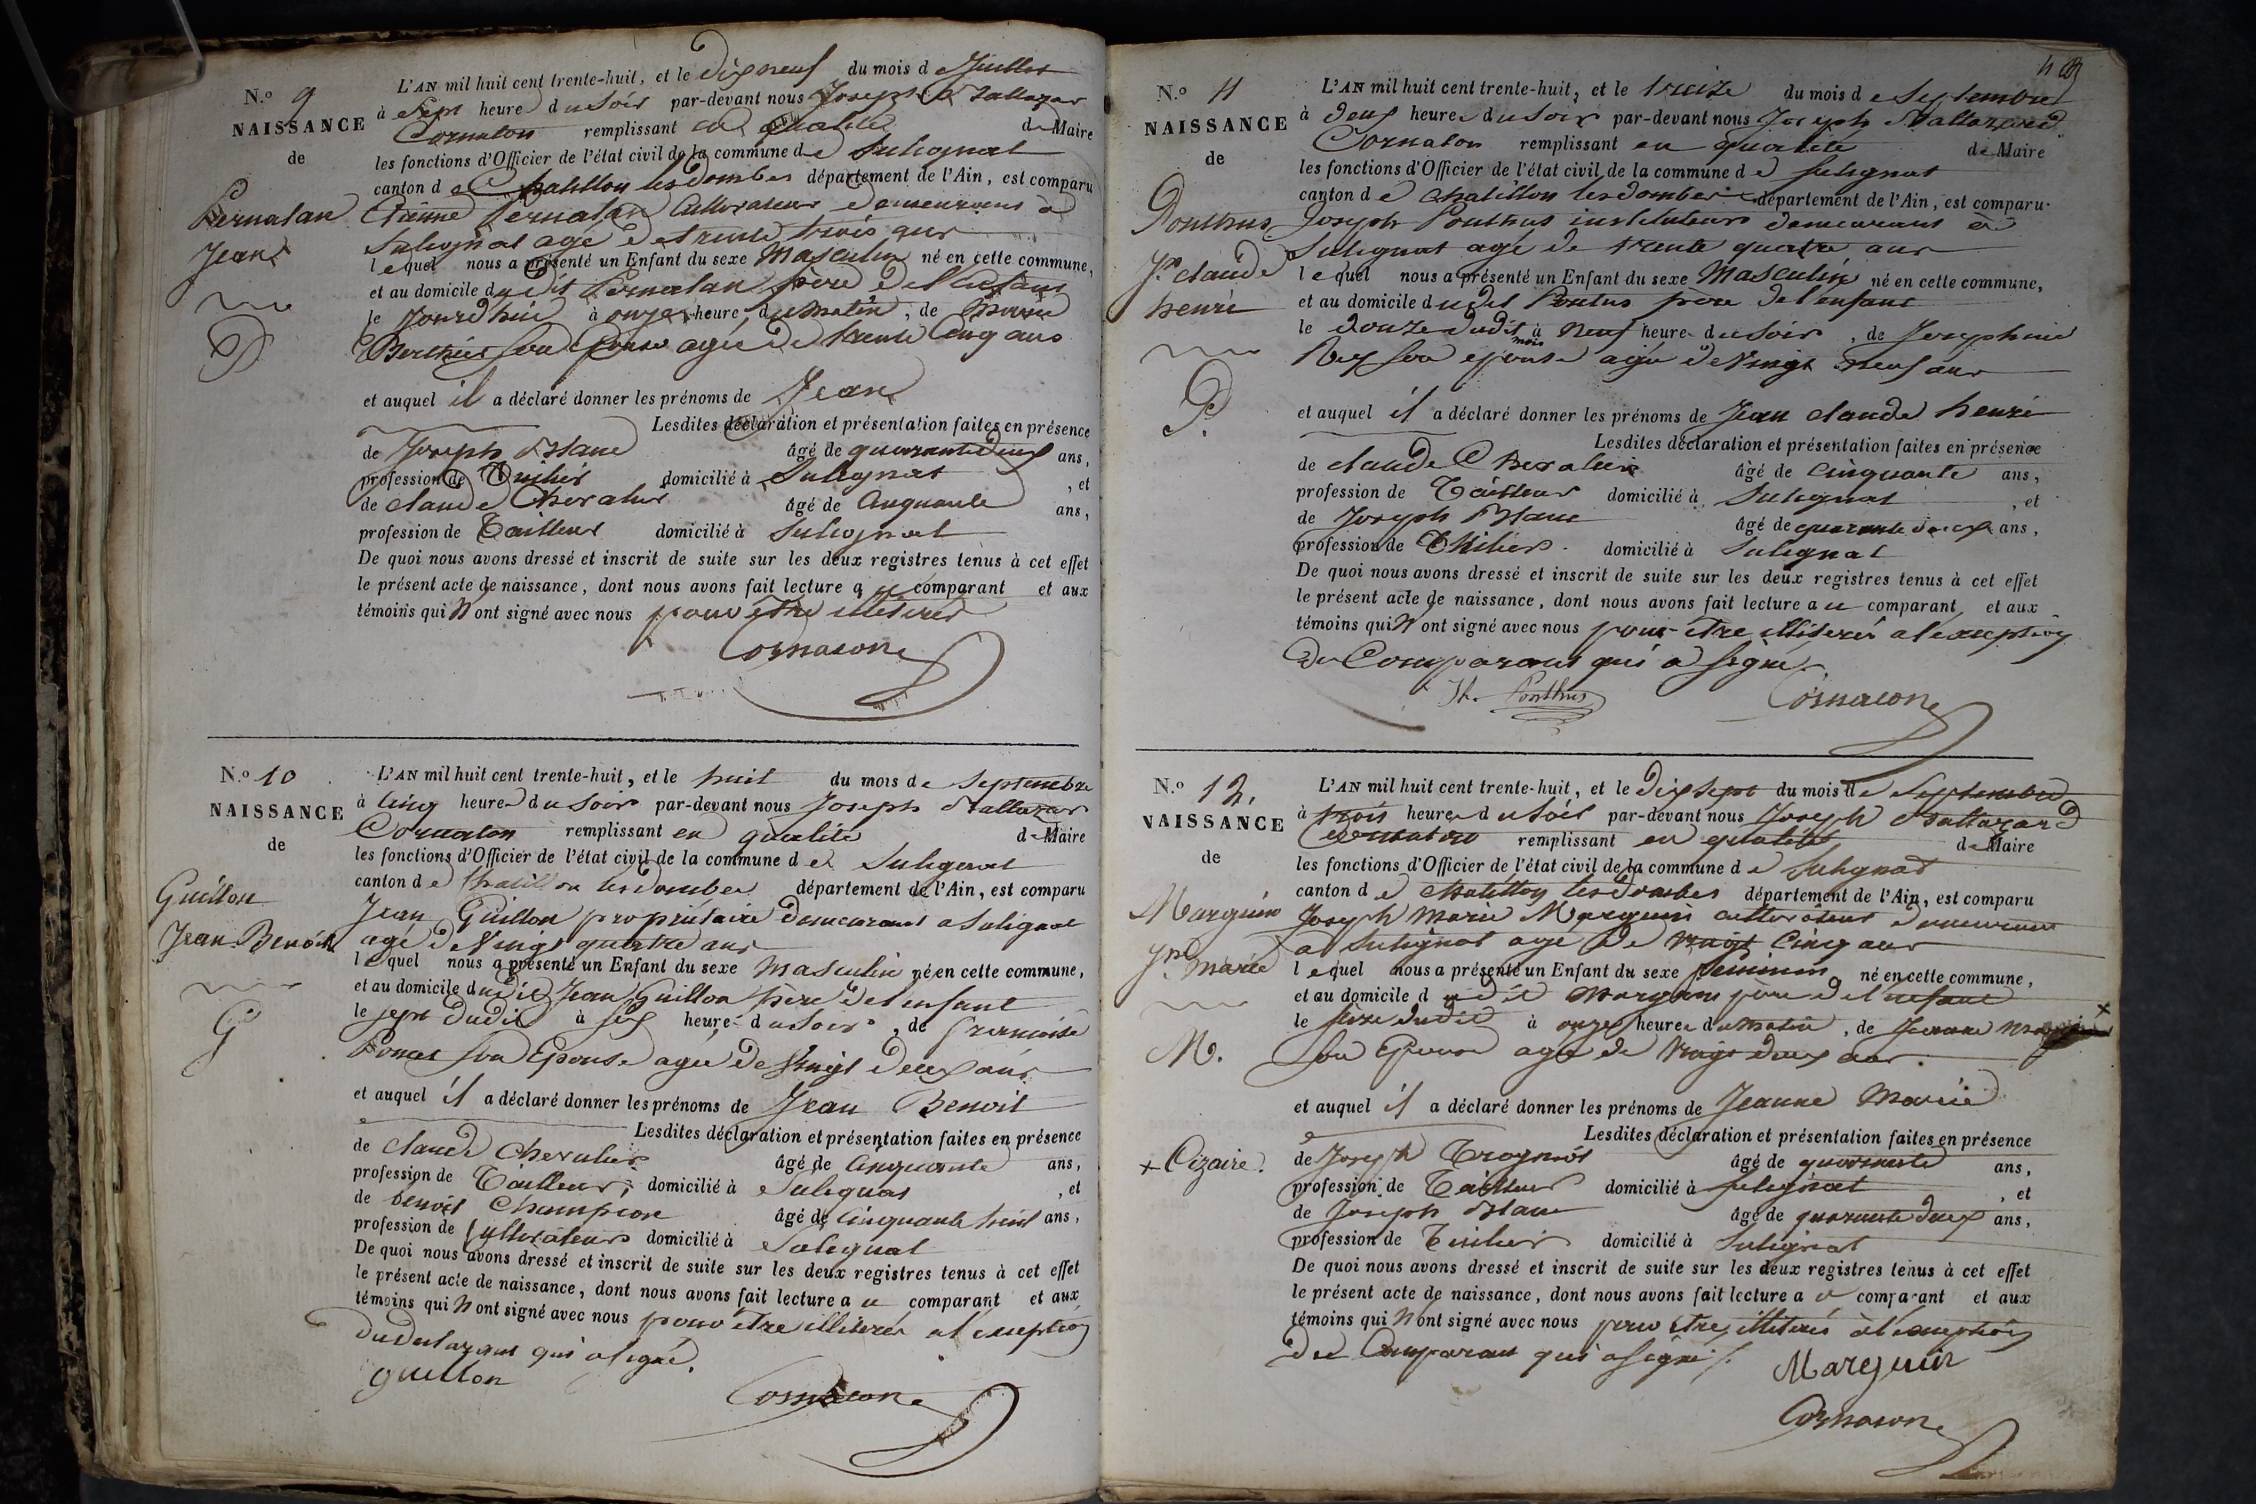 N.o 9
NAISSANCE
de
Pernatan
Jean
P
L'AN mil huit cent trente-huit, et le dix neuf du mois de Juillet
à sept heure du soir par-devant nous Joseph Baltazar
Cornaton remplissant en qualité de Maire
les fonctions d'Officier de l'état civil de la commune de Sulignat
canton de Chatillon les dombes département de l'Ain, est comparu
Etienne Pernatan Cultivateur demeurant à
Sulignat agé de trente trois ans
lequel nous a présenté un Enfant du sexe Masculin né en cette commune,
et au domicile dudit Pernatan père de l'enfant
le jourdhui à onze heure du matin, de Marie
Berthier son Epouse agée de trente Cinq ans
et auquel il a déclaré donner les prénoms de Jean
Lesdites déclaration et présentation faites en présence
de Joseph Blanc âgé de quarante deux ans,
profession de Tuilier domicilié à Sulignat, et
de claude Chevalier âgé de Cinquante ans,
profession de Tailleur domicilié à Sulignat
De quoi nous avons dressé et inscrit de suite sur les deux registres tenus à cet effet
le présent acte de naissance, dont nous avons fait lecture au comparant et aux
témoins qui N ont signé avec nous pour être illiterés
Cornaton
N.o 10
NAISSANCE
de
Guillon
Jean Benoit
G
L'AN mil huit cent trente-huit, et le huit du mois de Septembre
à Cinq heure du soir par-devant nous Joseph Baltazar
Cornaton remplissant en qualité de Maire
les fonctions d'Officier de l'état civil de la commune de Sulignat
canton de Chatillon les dombes département de l'Ain, est comparu
Jean Guillon propriétaire demeurant a Sulignat
agé de Vingt quatre ans
lequel nous a présenté un Enfant du sexe Masculin né en cette commune,
et au domicile dudit Jean Guillon père de l'enfant
le sept dudit à six heure du soir, de francoise
Poncet son Epouse agée de Vingt deux ans
et auquel il a déclaré donner les prénoms de Jean Benoit
Lesdites déclaration et présentation faites en présence
de claude chevalier âgé de Cinquante ans,
profession de Tailleur, domicilié à Sulignat, et
de benoit Champion âgé de Cinquante huit ans,
profession de Cultivateur domicilié à Sulignat
De quoi nous avons dressé et inscrit de suite sur les deux registres tenus à cet effet
le présent acte de naissance, dont nous avons fait lecture au comparant et aux
témoins qui N ont signé avec nous pour être illiterés a l'exception
du declarant qui a signé.
guillon
Cornaton
N.o 11
NAISSANCE
de
Ponthus
Jn claude
henri
P.
L'AN mil huit cent trente-huit, et le treize du mois de Septembre
à deux heure du soir par-devant nous Joseph Baltazard
Cornaton remplissant en qualité de Maire
les fonctions d'Officier de l'état civil de la commune de Sulignat
canton de chatillon les dombes département de l'Ain, est comparu
Joseph Ponthus instituteur demeurant à
Sulignat agé de trente quatre ans
lequel nous a présenté un Enfant du sexe Masculin né en cette commune,
et au domicile dudit Pontus père de l'enfant
le douze dudit mois à neuf heure du soir, de Josephine
Rey son épouse agée de Vingt neuf ans
et auquel il a déclaré donner les prénoms de Jean claude henri
Lesdites déclaration et présentation faites en présence
de claude Chevalier âgé de Cinquante ans,
profession de Tailleur domicilié à Sulignat, et
de Joseph Blanc âgé de quarante deux ans,
profession de Thilier domicilié à Sulignat
De quoi nous avons dressé et inscrit de suite sur les deux registres tenus à cet effet
le présent acte de naissance, dont nous avons fait lecture au comparant et aux
témoins qui N ont signé avec nous pour être illiterés a l'exception
du Comparant qui a signé.
Ponthus
Cornaton
N.o 12.
NAISSANCE
de
Marguin
Jne marie
M.
+ Cizaire.
L'AN mil huit cent trente-huit, et le dix sept du mois de Septembre
à trois heure du soir par-devant nous Joseph Baltazard
Cornaton remplissant en qualité de Maire
les fonctions d'Officier de l'état civil de la commune de Sulignat
canton de chatillon les dombes département de l'Ain, est comparu
Joseph Marie Marguin cultivateur demeurant
a Sulignat agé de vingt Cinq ans
lequel nous a présenté un Enfant du sexe feminin né en cette commune,
et au domicile dudit Marguin père de l'enfant
le seize dudit à onze heure du matin, de Jeanne +
son Epouse agée de Vingt deux ans
et auquel il a déclaré donner les prénoms de Jeanne Marie
Lesdites déclaration et présentation faites en présence
de Joseph âgé de quarante ans,
profession de Tailleur domicilié à Sulignat, et
de Joseph Blanc âgé de quarante deux ans,
profession de Tuilier domicilié à Sulignat
De quoi nous avons dressé et inscrit de suite sur les deux registres tenus à cet effet
le présent acte de naissance, dont nous avons fait lecture a comparant et aux
témoins qui N ont signé avec nous pour être illiterés à l'exception
du Comparant qui a signé /.
Marguin
Cornaton